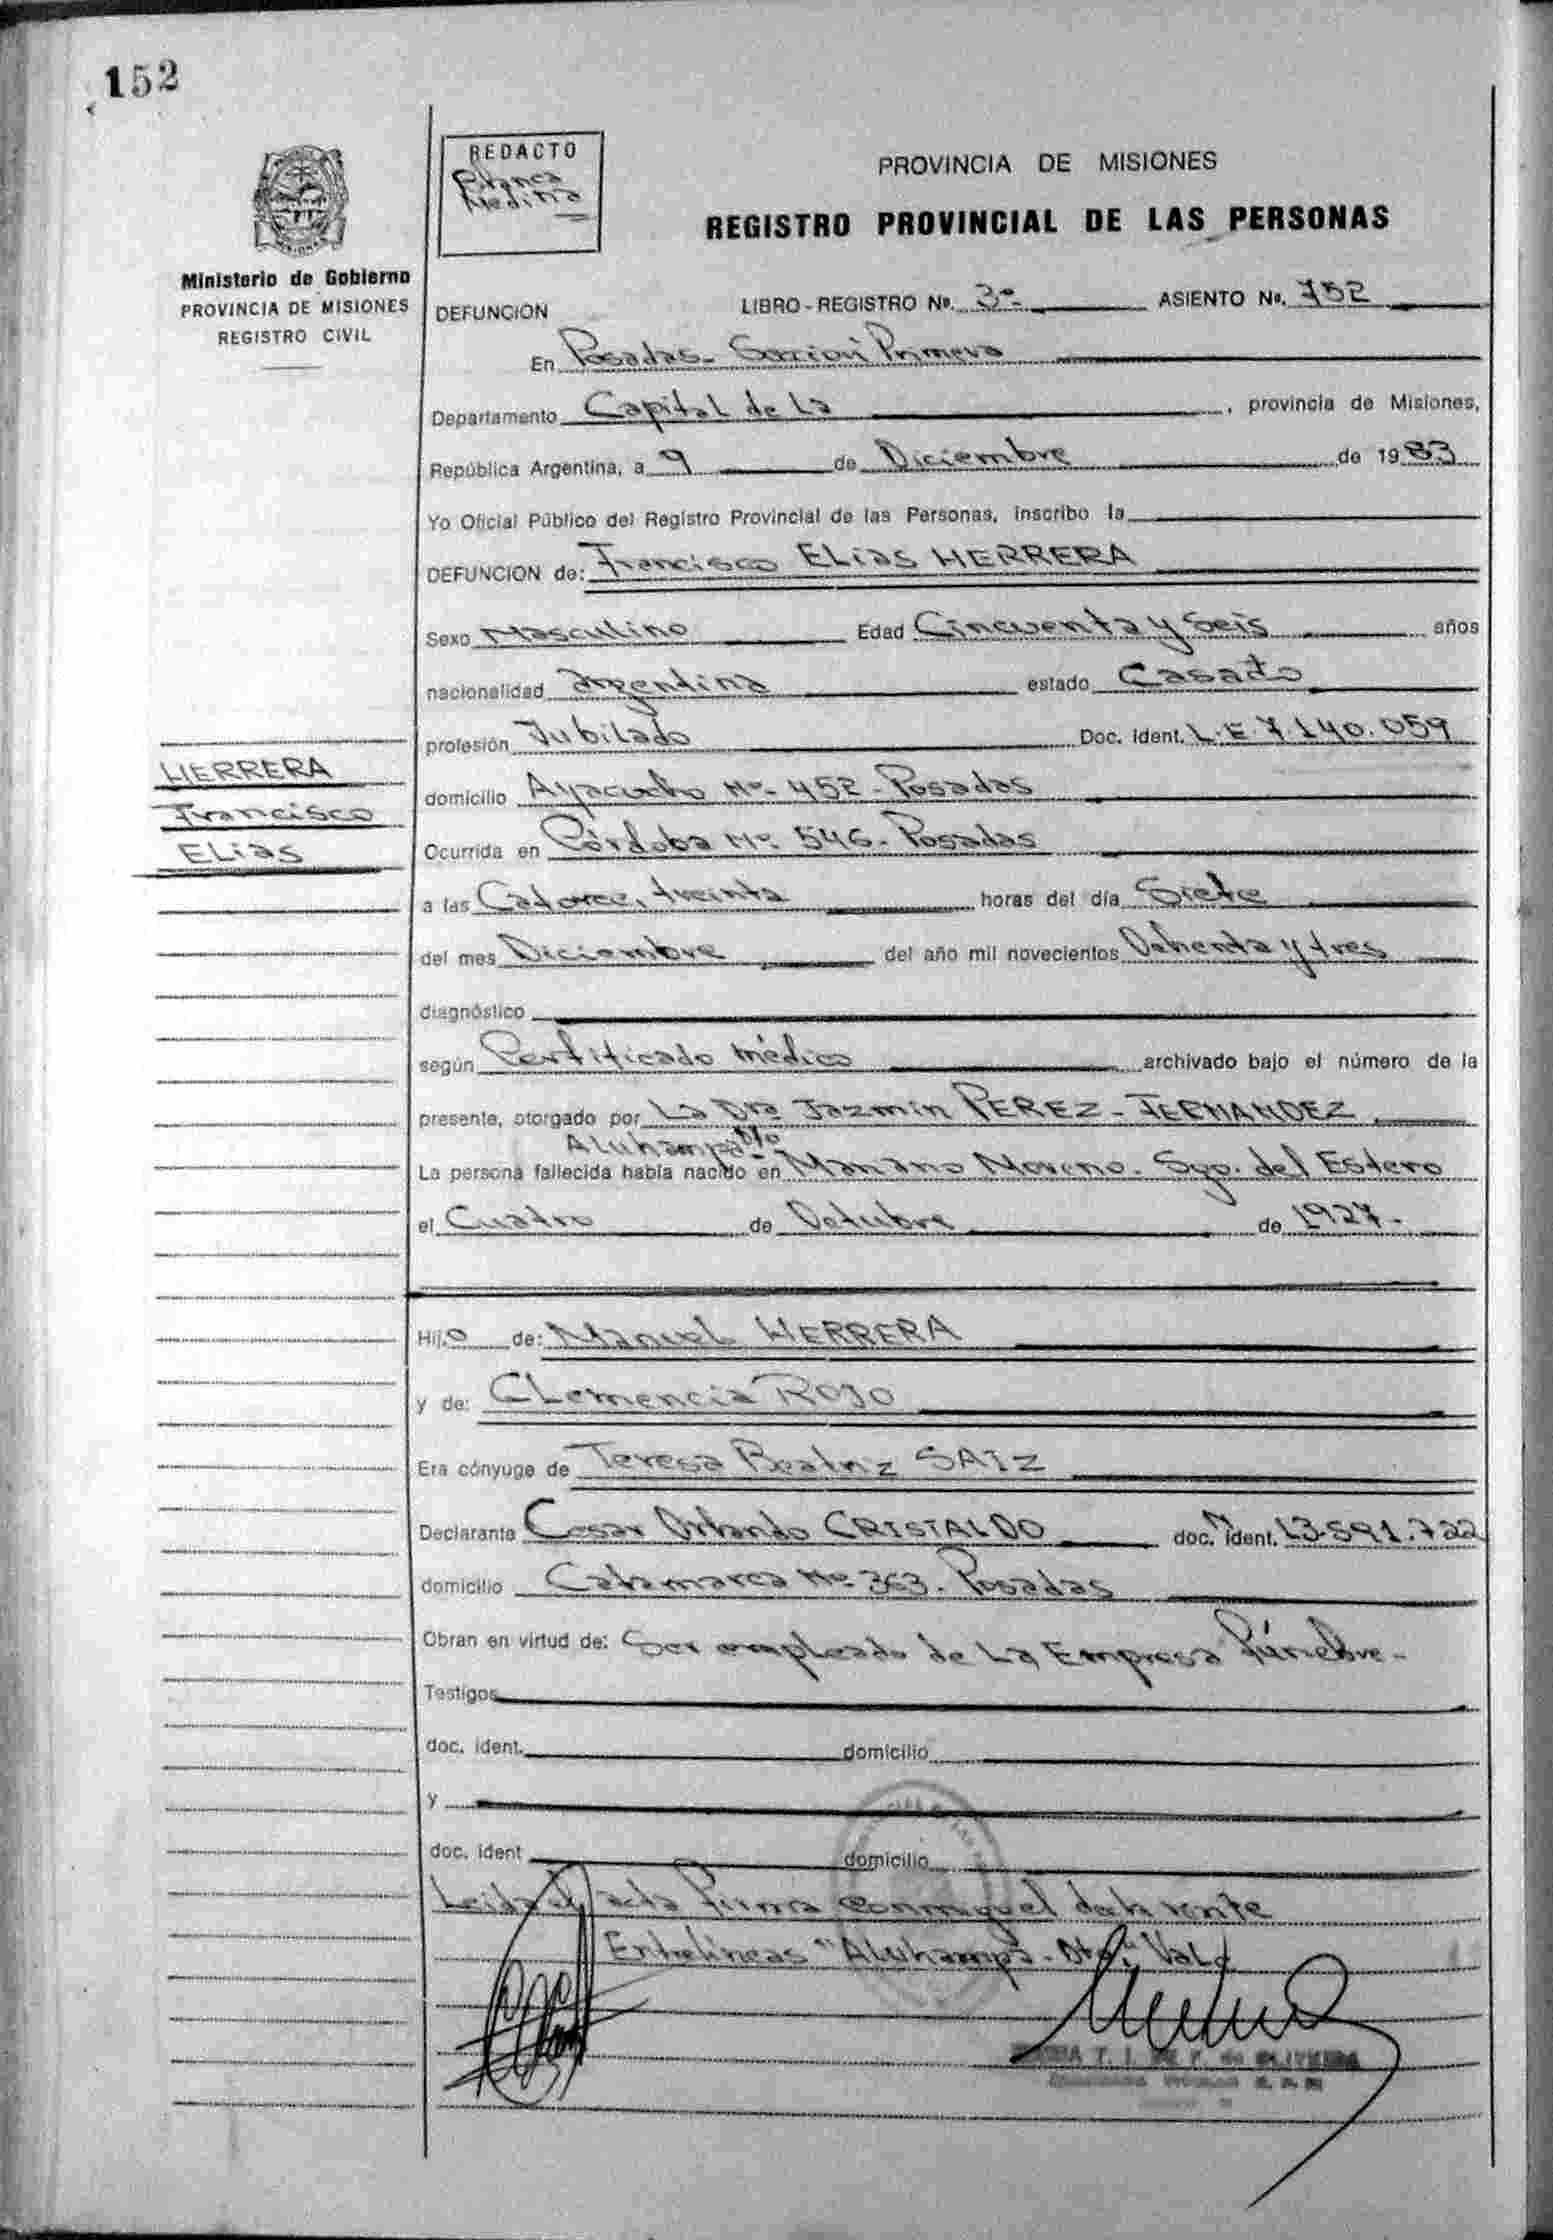 152
REDACTO
Blanca
Medina
PROVINCIA DE MISIONES
REGISTRO PROVINCIAL DE LAS PERSONAS
Ministerio de Gobierno
PROVINCIA DE MISIONES
REGISTRO CIVIL
DEFUNCION LIBRO-REGISTRO Nº. 3º- ASIENTO Nº. 752
En Posadas- Sección Primera
Departamento Capital de La , provincia de Misiones,
República Argentina, a 9 de Diciembre de 1983
Yo Oficial Público del Registro Provincial de las Personas, inscribo la
DEFUNCION de: Francisco ELias HERRERA
Sexo Masculino Edad Cincuenta y Seis años
nacionalidad argentina estado Casado
profesión Jubilado Doc. Ident. L.E. 7.140.059
HERRERA
Francisco
ELias
domicilio Ayacucho Nº- 452- Posadas
Ocurrida en Córdoba Nº- 546- Posadas
a las Catorce, treinta horas del día Siete
del mes Diciembre del año mil novecientos Ochenta y tres
diagnóstico
según Certificado médico archivado bajo el número de la
presente, otorgado por La Dra Jazmín PEREZ-FERNANDEZ
Aluhampa- Dto
La persona fallecida había nacido en Mariano Moreno- Sgo. del Estero
el Cuatro de Octubre de 1927-
Hijo de: Manuel HERRERA
y de: CLemencia ROJO
Era cónyuge de Teresa Beatriz SAIZ
Declarante Cesar Orlando CRISTALDO doc. ident. 13.591.722
domicilio Catamarca Nº- 363- Posadas
Obran en virtud de: Ser empleado de La Empresa Fúnebre-
Testigos
doc. ident. domicilio
y
doc. ident domicilio
Leida el acta firma conmigo el declarante
Entrelíneas "Aluhampa- Dto" Vale
T. I. de OLIVEIRA